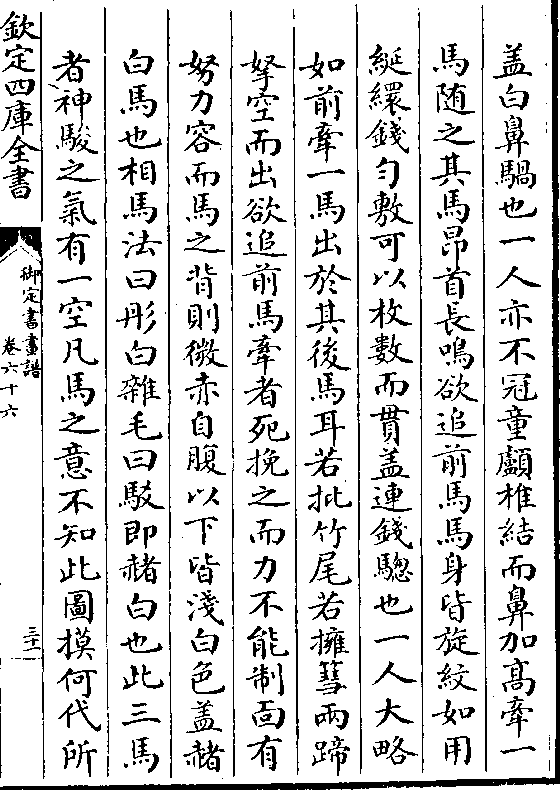 盖白鼻騧也一人亦不冠童顱椎結而鼻加髙牽一
馬随之其馬昂首長鳴欲追前馬馬身皆旋紋如用
綖繯錢勻敷可以枚數而貫盖連錢驄也一人大略
如前牽一馬出於其後馬耳若批竹尾若擁篲兩蹄
拏空而出欲追前馬牽者死挽之而力不能制面有
努力容而馬之背則微赤自腹以下皆淺白色盖赭
白馬也相馬法曰彤白雜毛曰駁即赭白也此三馬
者神駿之氣有一空凡馬之意不知此圖摸何代所
欽定四庫全書
御定書畫譜
卷六十六
三十二